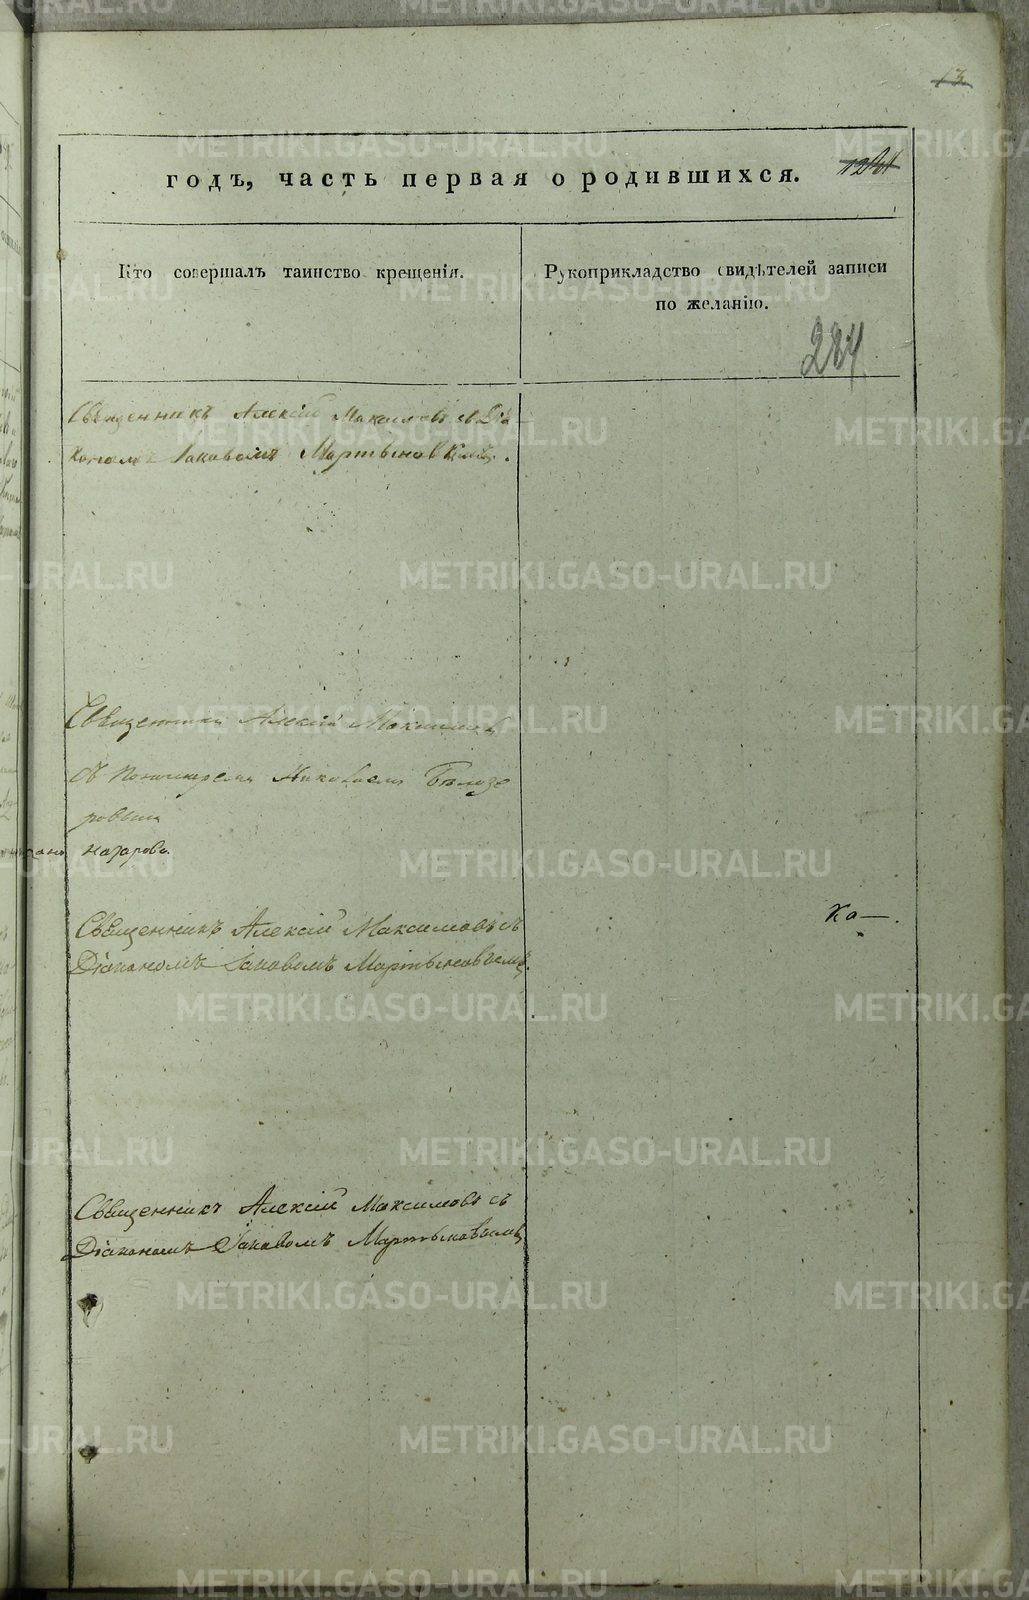 13
годъ, часть первая о родившихся.
Кто совершалъ таинство крещенія.
Рукоприкладство свидѣтелей записи
по желанію.
284
Священникъ Алексій Максимовъ съ Діа-
кономъ Іаковомъ Мартыновымъ.
Священникъ Алексій Максимовъ
съ Пономаремъ Николаемъ Бѣлозе
ровымъ
Священникъ Алексій Максимовъ съ
Діакономъ Іаковомъ Мартыновымъ.
Ка—.
Священникъ Алексій Максимовъ съ
Діакономъ Іаковомъ Мартыновымъ
METRIKI.GASO-URAL.RU